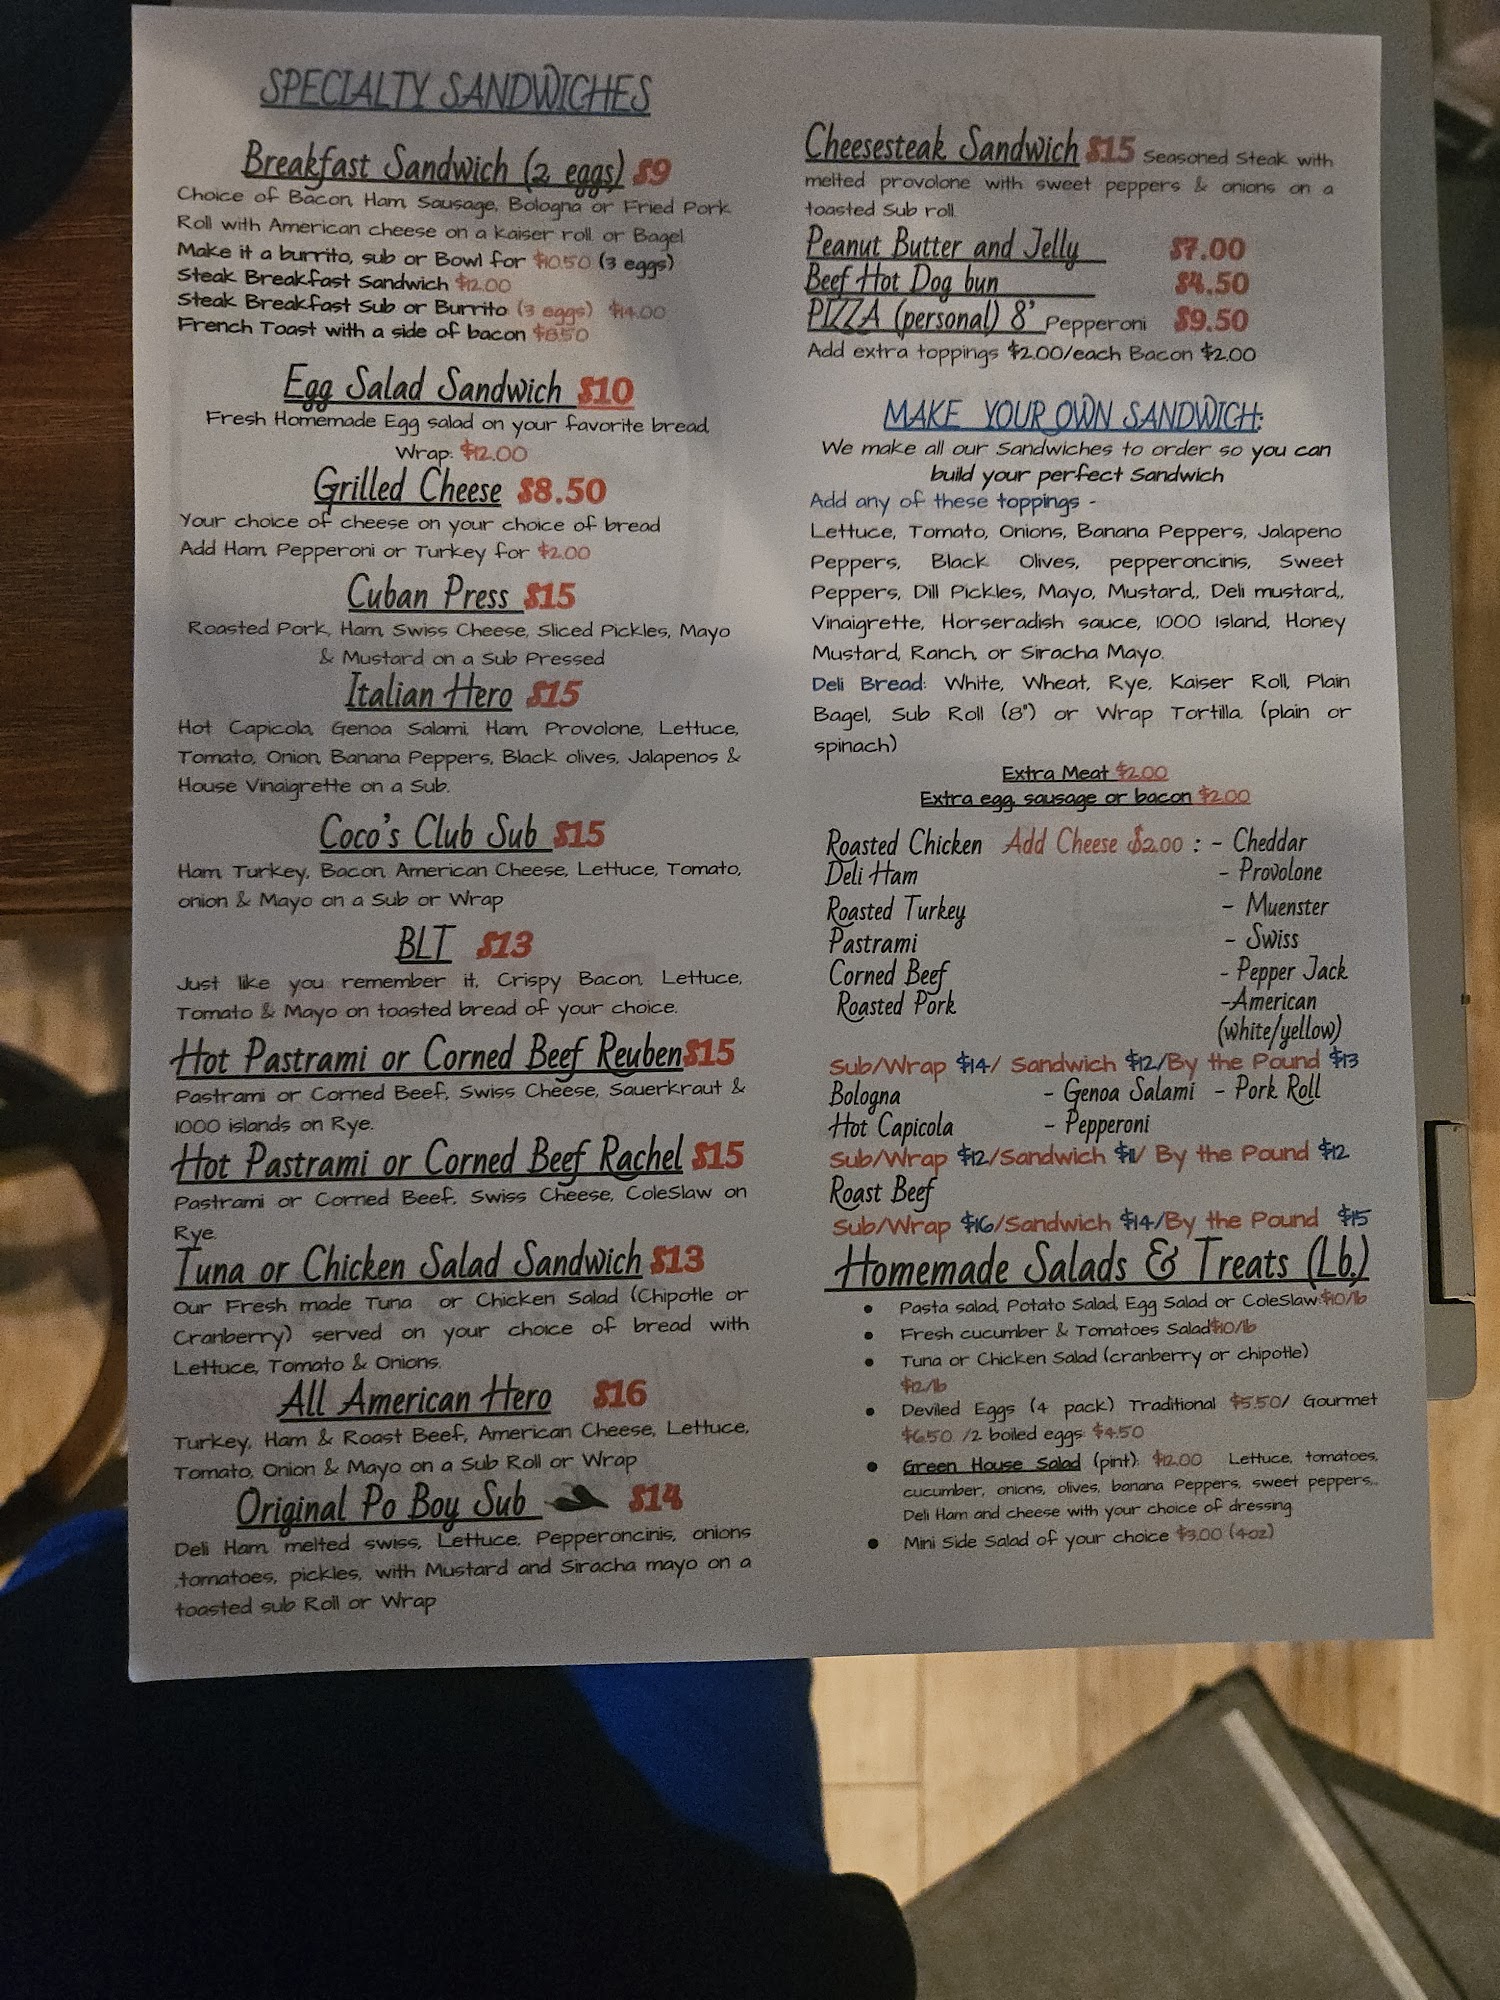 SPECIALTY SANDWICHES
Breakfast Sandwich (2 eggs) $9
Choice of Bacon, Ham, Sausage, Bologna or Fried Pork
Roll with American cheese on a kaiser roll or Bagel
Make it a burrito, sub or Bowl for $10.50 (3 eggs)
Steak Breakfast Sandwich $12.00
Steak Breakfast Sub or Burrito (3 eggs) $14.00
French Toast with a side of bacon $8.50
Egg Salad Sandwich $10
Fresh Homemade Egg salad on your favorite bread,
Wrap: $12.00
Grilled Cheese $8.50
Your choice of cheese on your choice of bread
Add Ham, Pepperoni or Turkey for $2.00
Cuban Press $15
Roasted Pork, Ham, Swiss Cheese, Sliced Pickles, Mayo
& Mustard on a Sub Pressed
Italian Hero $15
Hot Capicola, Genoa Salami, Ham, Provolone, Lettuce,
Tomato, Onion, Banana Peppers, Black olives, Jalapenos &
House Vinaigrette on a Sub.
Coco's Club Sub $15
Ham, Turkey, Bacon, American Cheese, Lettuce, Tomato,
onion & Mayo on a Sub or Wrap
BLT $13
Just like you remember it, Crispy Bacon, Lettuce,
Tomato & Mayo on toasted bread of your choice.
Hot Pastrami or Corned Beef Reuben $15
Pastrami or Corned Beef, Swiss Cheese, Sauerkraut &
1000 islands on Rye.
Hot Pastrami or Corned Beef Rachel $15
Pastrami or Corned Beef, Swiss Cheese, ColeSlaw on
Rye.
Tuna or Chicken Salad Sandwich $13
Our Fresh made Tuna or Chicken Salad (Chipotle or
Cranberry) served on your choice of bread with
Lettuce, Tomato & Onions.
All American Hero $16
Turkey, Ham & Roast Beef, American Cheese, Lettuce,
Tomato, Onion & Mayo on a Sub Roll or Wrap
Original Po Boy Sub $14
Deli Ham, melted swiss, Lettuce, Pepperoncinis, onions
,tomatoes, pickles, with Mustard and Siracha mayo on a
toasted sub Roll or Wrap
Cheesesteak Sandwich $15 Seasoned Steak with
melted provolone with sweet peppers & onions on a
toasted Sub roll.
Peanut Butter and Jelly $7.00
Beef Hot Dog bun $4.50
PIZZA (personal) 8' Pepperoni $9.50
Add extra toppings $2.00/each Bacon $2.00
MAKE YOUR OWN SANDWICH:
We make all our Sandwiches to order so you can
build your perfect Sandwich
Add any of these toppings -
Lettuce, Tomato, Onions, Banana Peppers, Jalapeno
Peppers, Black Olives, pepperoncinis, Sweet
Peppers, Dill Pickles, Mayo, Mustard,, Deli mustard,,
Vinaigrette, Horseradish sauce, 1000 Island, Honey
Mustard, Ranch, or Siracha Mayo.
Deli Bread: White, Wheat, Rye, Kaiser Roll, Plain
Bagel, Sub Roll (8") or Wrap Tortilla (plain or
spinach)
Extra Meat $2.00
Extra egg, sausage or bacon $2.00
Roasted Chicken Add Cheese $2.00 : - Cheddar
Deli Ham - Provolone
Roasted Turkey - Muenster
Pastrami - Swiss
Corned Beef - Pepper Jack
Roasted Pork -American
(white/yellow)
Sub/Wrap $14/ Sandwich $12/By the Pound $13
Bologna - Genoa Salami - Pork Roll
Hot Capicola - Pepperoni
Sub/Wrap $12/Sandwich $11/ By the Pound $12
Roast Beef
Sub/Wrap $16/Sandwich $14/By the Pound $15
Homemade Salads & Treats (Lb,)
• Pasta salad, Potato Salad, Egg Salad or ColeSlaw:$10/lb
• Fresh cucumber & Tomatoes Salad$10/lb
• Tuna or Chicken Salad (cranberry or chipotle)
$12/lb
• Deviled Eggs (4 pack) Traditional $5.50/ Gourmet
$6.50 /2 boiled eggs: $4.50
• Green House Salad (pint): $12.00 Lettuce, tomatoes,
cucumber, onions, olives, banana Peppers, sweet peppers,.
Deli Ham and cheese with your choice of dressing
• Mini Side Salad of your choice $3.00 (4oz)